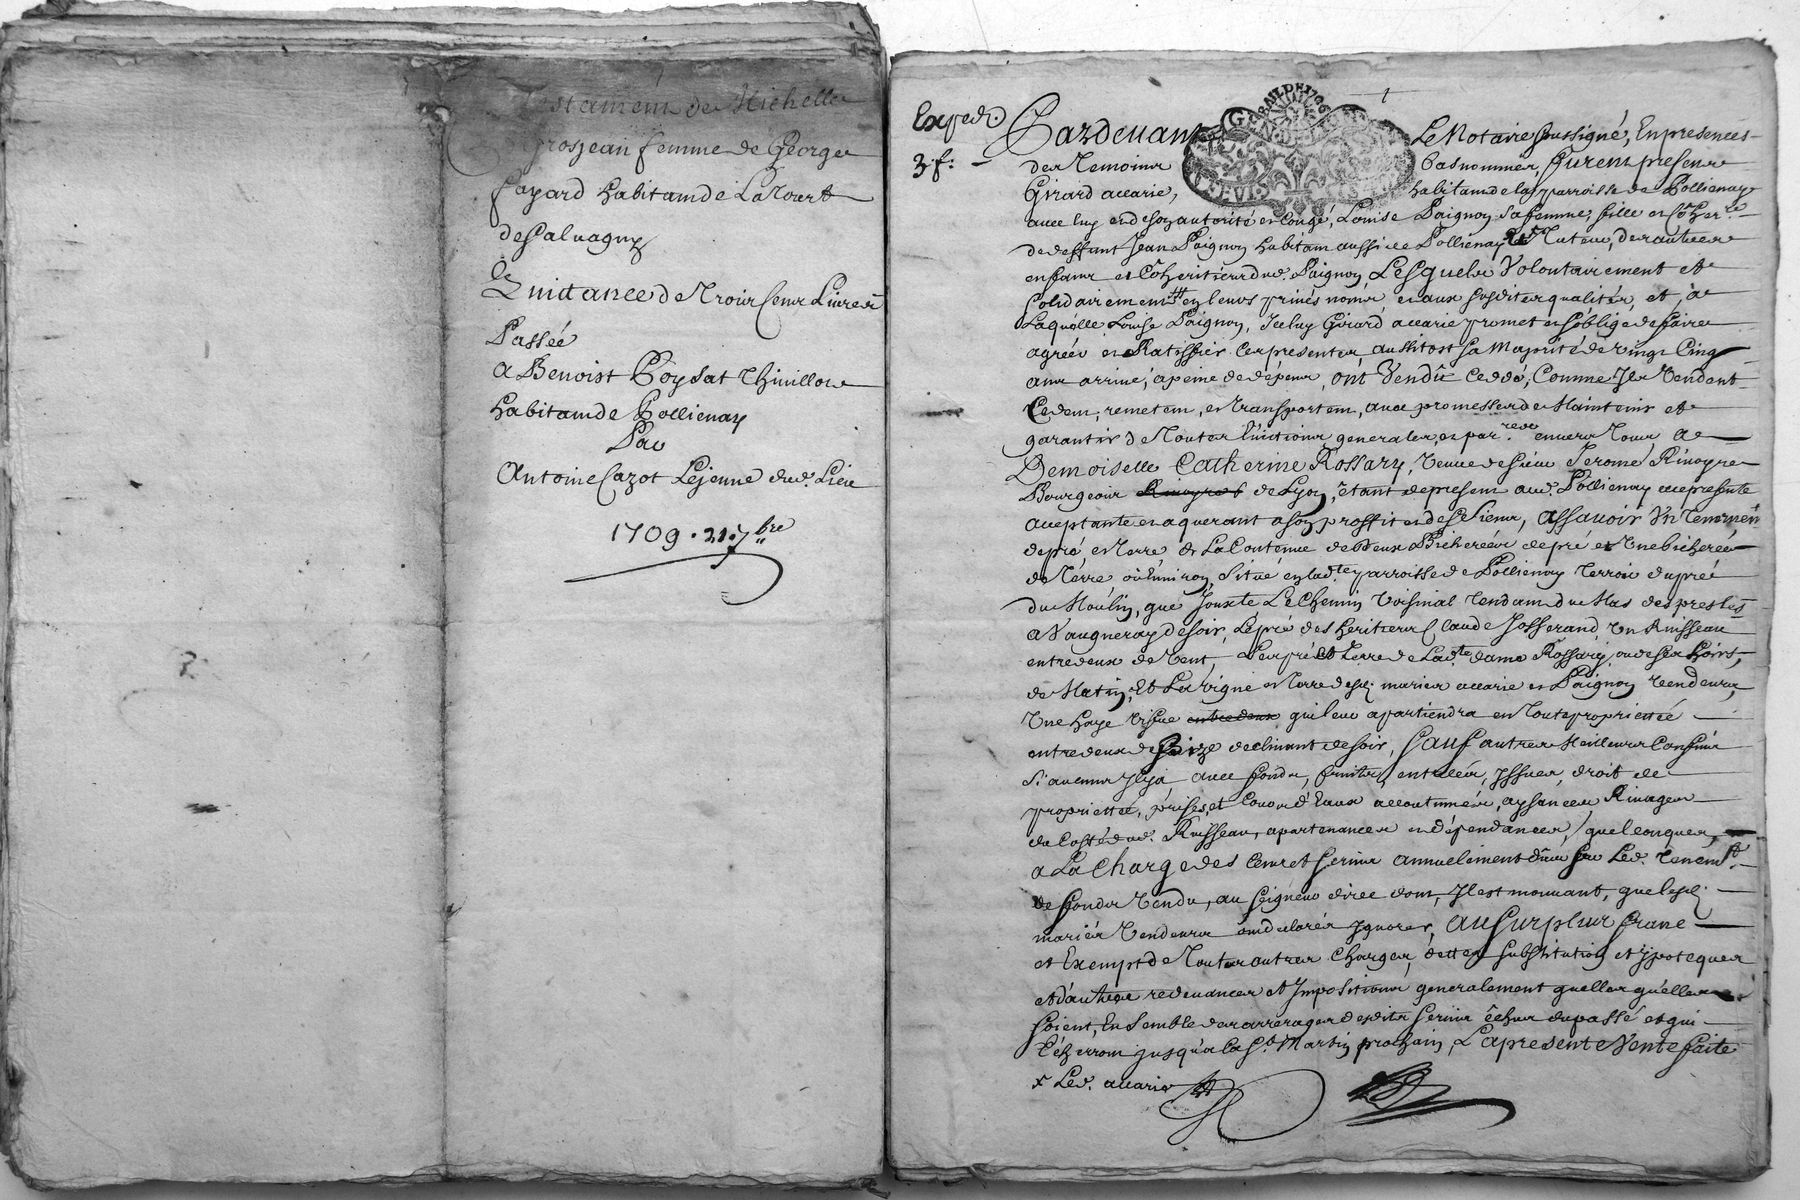 Testament de Michelle
Grosjean femme de George
fayard habitant de La Tourt
de Saluagny
&
Quittance de Trois Cens Livres
Passée
a Benoist Poysat Thivillon
habitant de Pollienay
Par
Antoine Cazot Lejeune dud. Lieu
1709 . 21. 7bre
1
Exped.
3 f:
GERALDE 1706
Pardeuant Le Notaire soussigné, En presences
des Temoins bas nommes, furent presens
Girard accarie, habitant de la parroisse de Pollienay
auec luy et de son autorité et congé, Louise Paignon sa femme, fille et
de deffunt Jean Paignon habitant aussi de Pollienay
enfans et Cohéritiers dud. Paignon Lesquels Volontairement et
solidairement en leurs privés noms et aux susdites qualités, et à
Laquelle Louise Paignon, Icelluy Girard accarie promet et s'oblige de faire
agréér et Ratiffier ces presentes aussitost sa Majorité de Vingt Cinq
ans arrivé, a peine de dépens, ont Vendû Ceddé, Comme Ils Vendent
Cedent, remetent, et transportent, auec promesses de Maintenir et
garantir de Toutes Euictions generales, et par.res enuers Tous, A
Demoiselle Catherine Rossary, veuue de sieur Jerome Rivoyre
Bourgeois de Lyon, étant de present aud. Pollienay icy presente
acceptante et aquerant a son proffit et des Siens, Assauoir Vn Tenement
de pré, et Terre de La Contenue de Deux Bicherées de pré et Vne bicherée
de Terre ou Enuiron, Situé en lad.te parroisse de Pollienay Terroir du pré
du Moulin, que Jouxte Le Chemin Voisinal Tendant du Mas des presles
a Vaugneray de soir, Le pré des heritiers Claude Josserand Vn Ruisseau
entre deux de Vent, Les pré et Terre de Lad.te dame Rossary, ou de ses hoirs,
de Matin, Et La Vigne et Terre desd. mariés accarie et Paignon Vendeurs,
Vne haye Visue entredeux qui leur apartiendra en Toute proprietté
entredeux de bize declinant de soir, sauf autres Meilleurs Confins
Si aucuns Il y a auec fonds, fruits, entrées, Issues, droit de
proprietté, prises, et Cours d'Eaux accoutumés, aysances Rivages
du Costé dud. Ruisseau, apartenances et dépendances, quelconques,
a La Charge des Cens et servis annuelement dûs sur Led. Tenemt
de fonds Vendu, au seigneur direc dont, Il est mouuant, que lesd.
mariés Vendeurs ont declarés Ignorer, Au Surplus franc
et Exempt de Toutes autres Charges, dettes substitution et ypoteques
et d'autres redeuances et Impositions generalement quelles qu'elles
soient, En semble des arrerages desdits servis échus du passé et qui
écherront jusqu'a la St. Martin prochain, La présente Vente faite
x Led. accarie